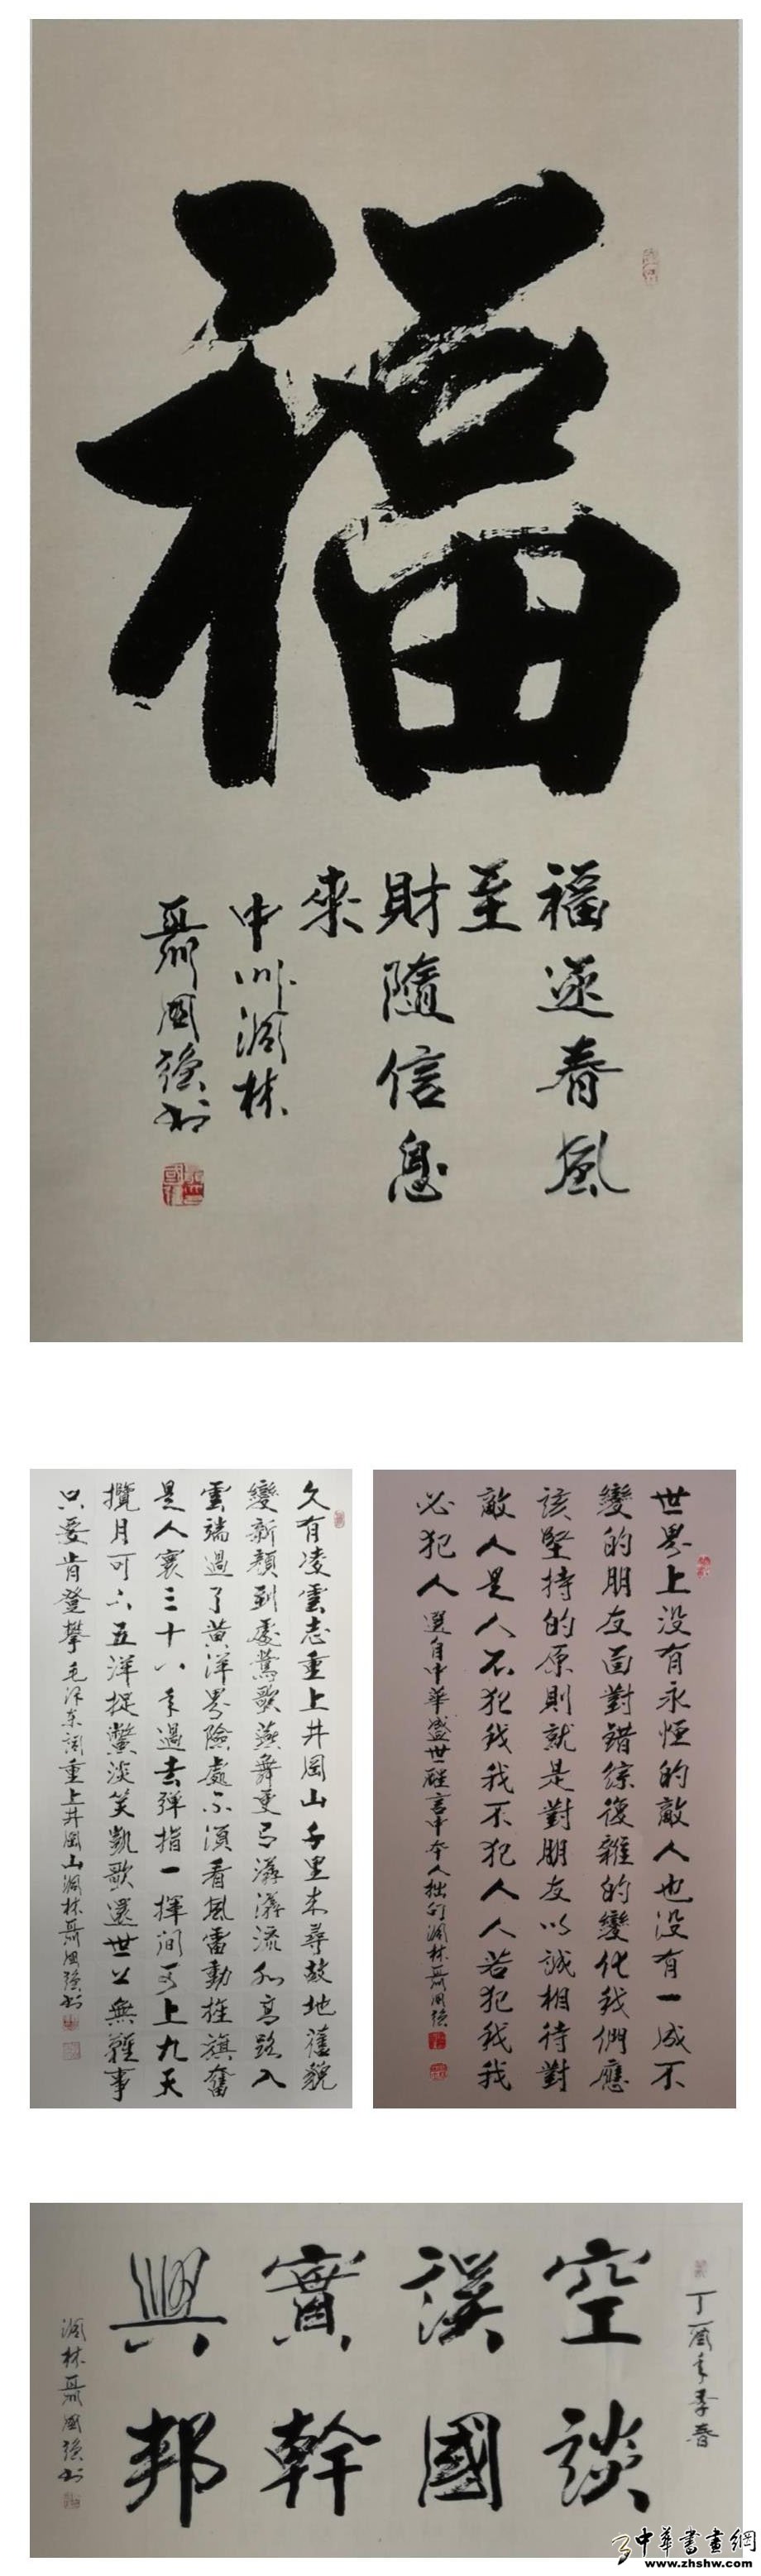 福
福逐春風
至
財隨信息
來
中州澗林
聶國强书
世界上没有永恒的敵人也没有一成不
變的朋友面對錯綜復雜的變化我們應
該堅持的原則就是對朋友以誠相待對
敵人是人不犯我我不犯人人若犯我我
必犯人 選自中華盛世醒言中本人拙句澗林聶國强
久有凌雲志重上井岡山千里来尋故地舊貌
變新顔到處鶯歌燕舞更有潺潺流水高路入
雲端過了黄洋界險處不須看風雷動旌旗奮
是人寰三十八年過去彈指一揮间可上九天
攬月可下五洋捉鱉淡笑凱歌還世上無難事
只要肯登攀毛泽东詞重上井岡山澗林聶国强书
丁酉年季春
空談
誤國
實幹
興邦
澗林聶國强书
中華書畫網
www.zhshw.com